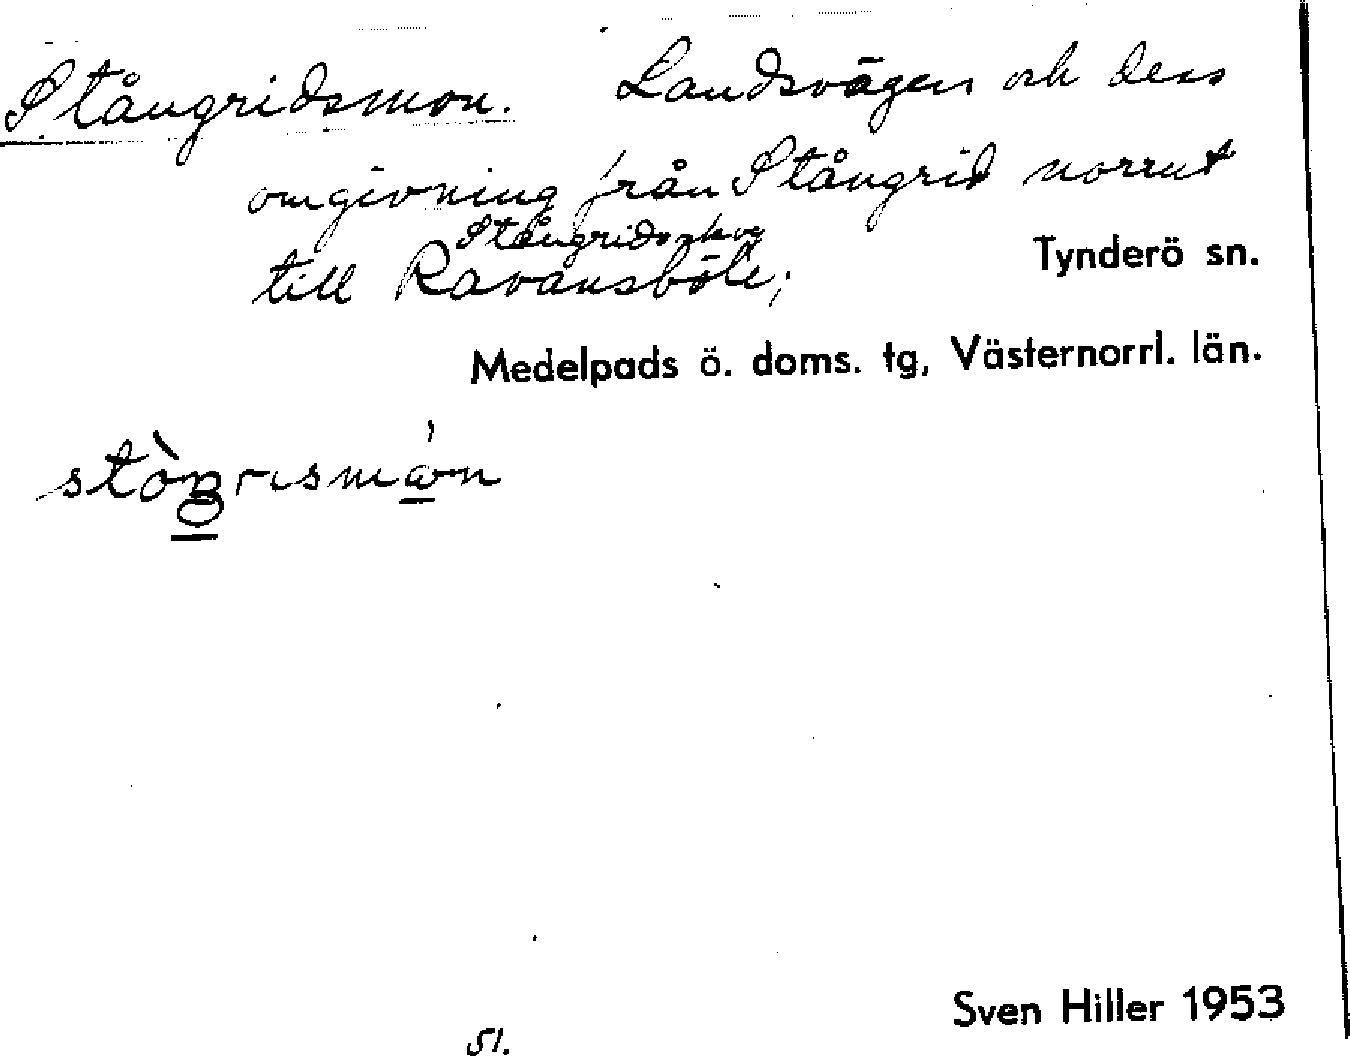 Stångridsmon. Landsvägen och dess
omgivning från Stångrid norrut
Stångridsskog
till Ravansböle; Tynderö sn.
Medelpads ö. doms. tg, Västernorrl. län.
Sven Hiller 1953
51.